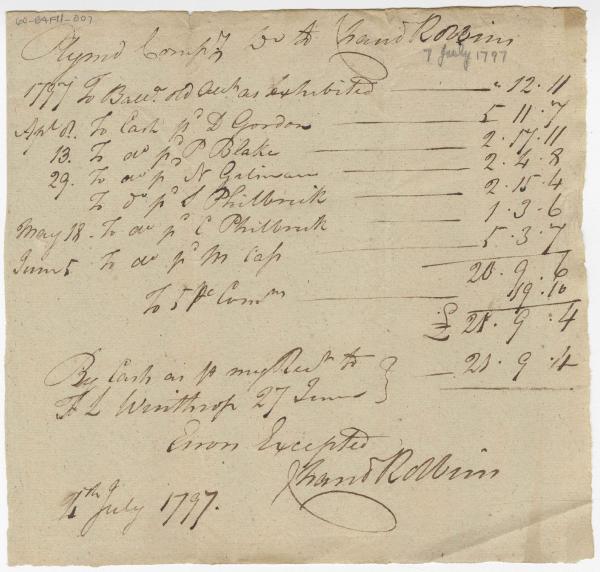 60-B4F11-007
Plymo Compy Dr to Chand Robbins
7 July 1797
1797 To Balle. old acct as exhibited — " 12 . 11
Apl 8. To Cash pd D Gordon — 5 11 . 7
13. To do pd P Blake — 2 . 17 . 11
29. To do pd N Gilman — 2 . 4 . 8
To do pd S Philbrick — 2 . 15 . 4
May 18. To do pd C Philbrick — 1 . 3 . 6
June 5 To do pd M Cass — 5 . 3 . 7
20 . 9 . 6
To 5 pr Ct Comns — .19 . 10
£ 21 . 9 . 4
By Cash as pr my Rect to
T L Winthrop 27 June } — 21 . 9 . 4
Errors Excepted
Chand Robbins
7th July 1797.